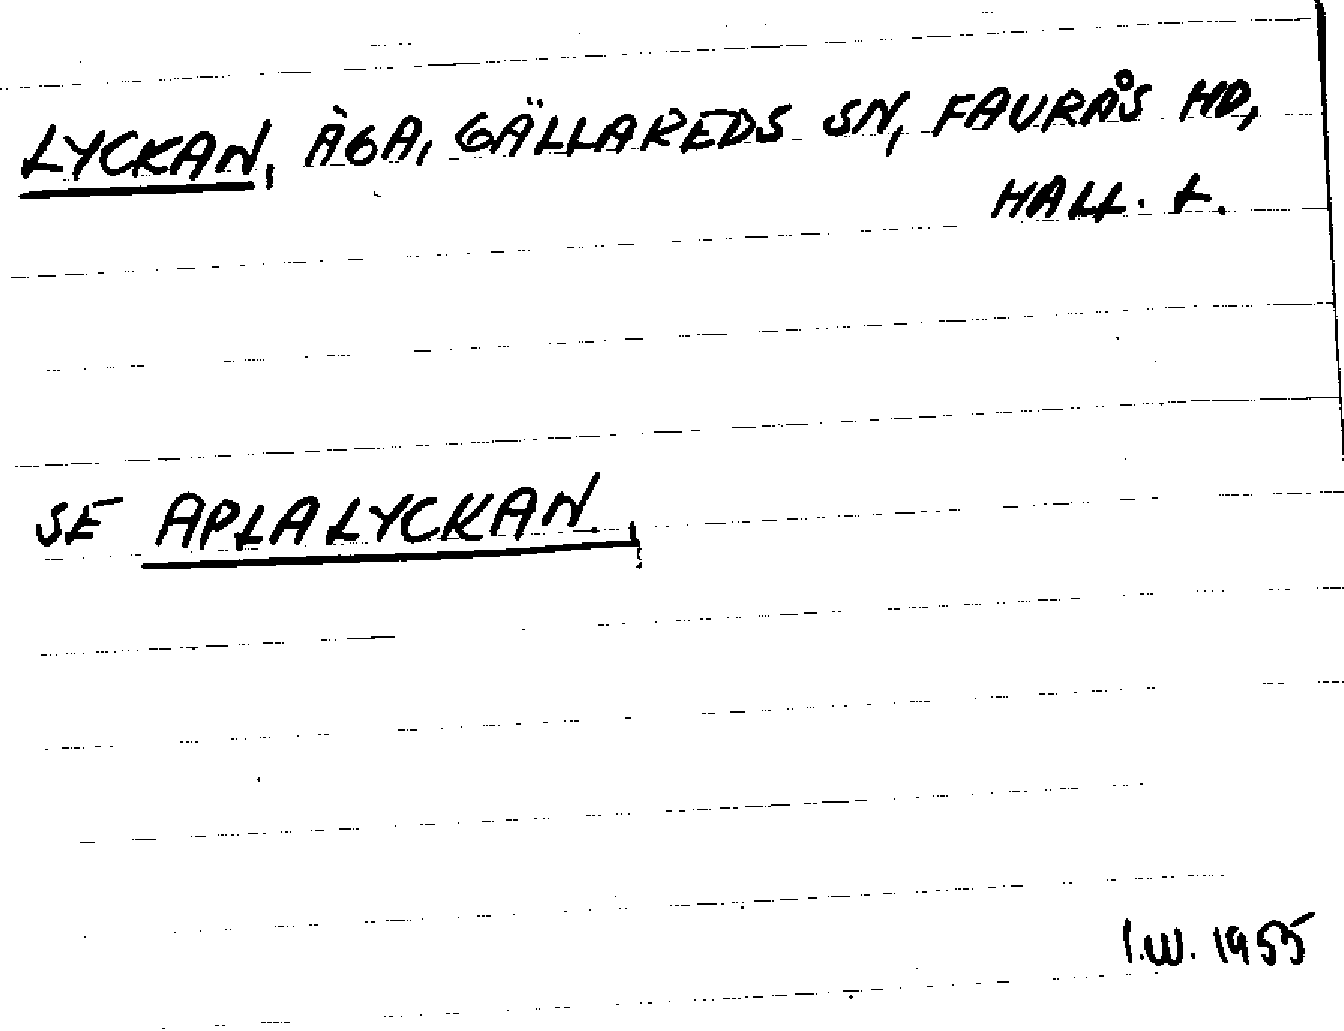 LYCKAN, ÄGA, GÄLLAREDS SN, FAURÅS HD,
HALL. L.
SE APLALYCKAN.
I.W. 1955